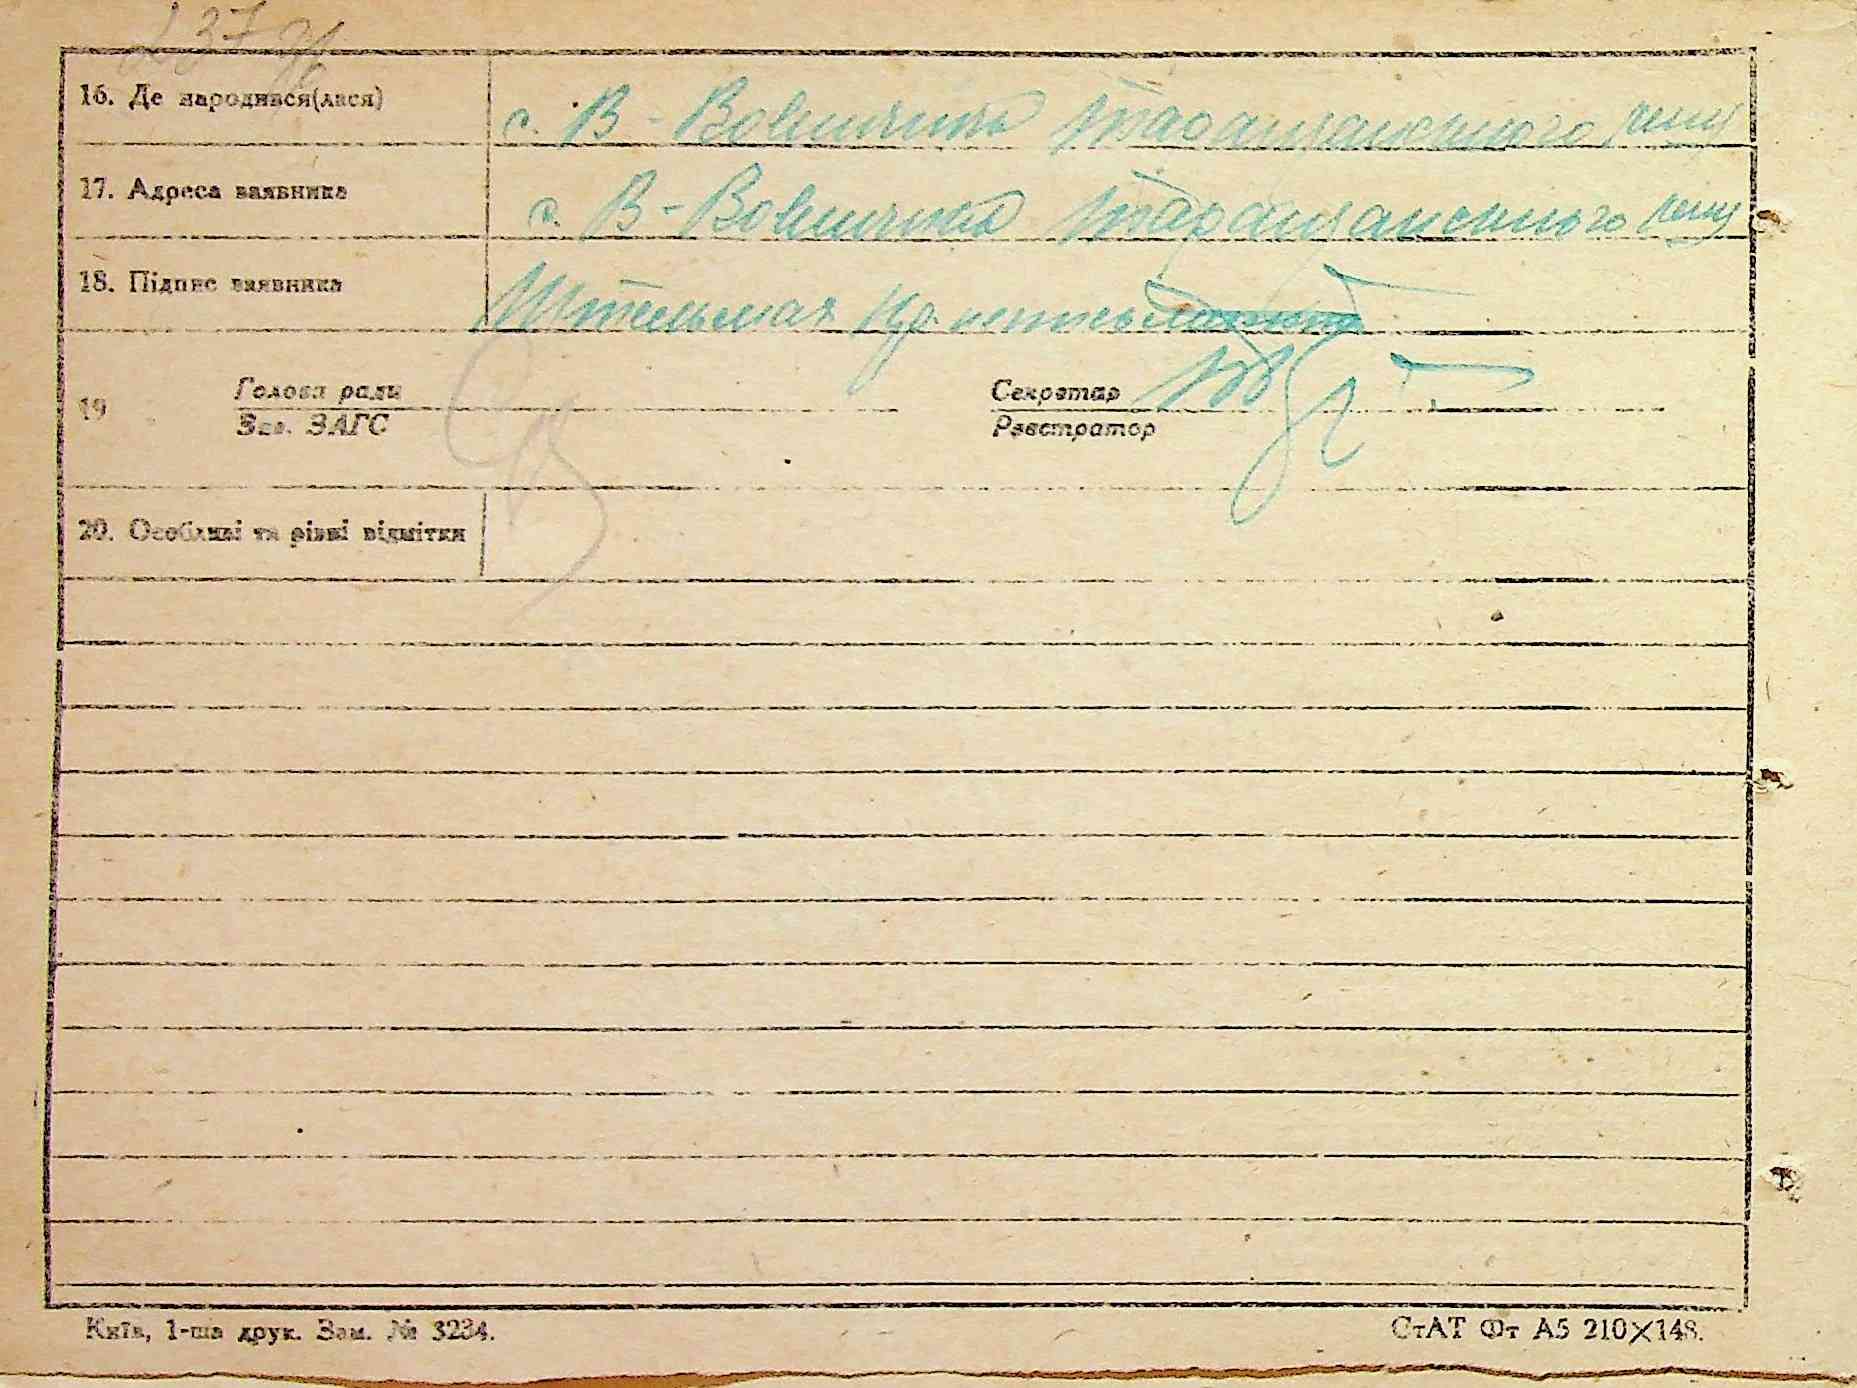 237
16. Де народився(лася) с. В-Вовнянка Таращанського р-ну
17. Адреса заявника с. В-Вовнянка Таращанського р-ну
18. Підпис заявника Штельмах
19 Голова ради Секретар
Зав. ЗАГС Реєстратор
20. Особливі та різні відмітки
Київ, 1-ша друк. Зам. № 3234.
СтАТ Фт А5 210×148.